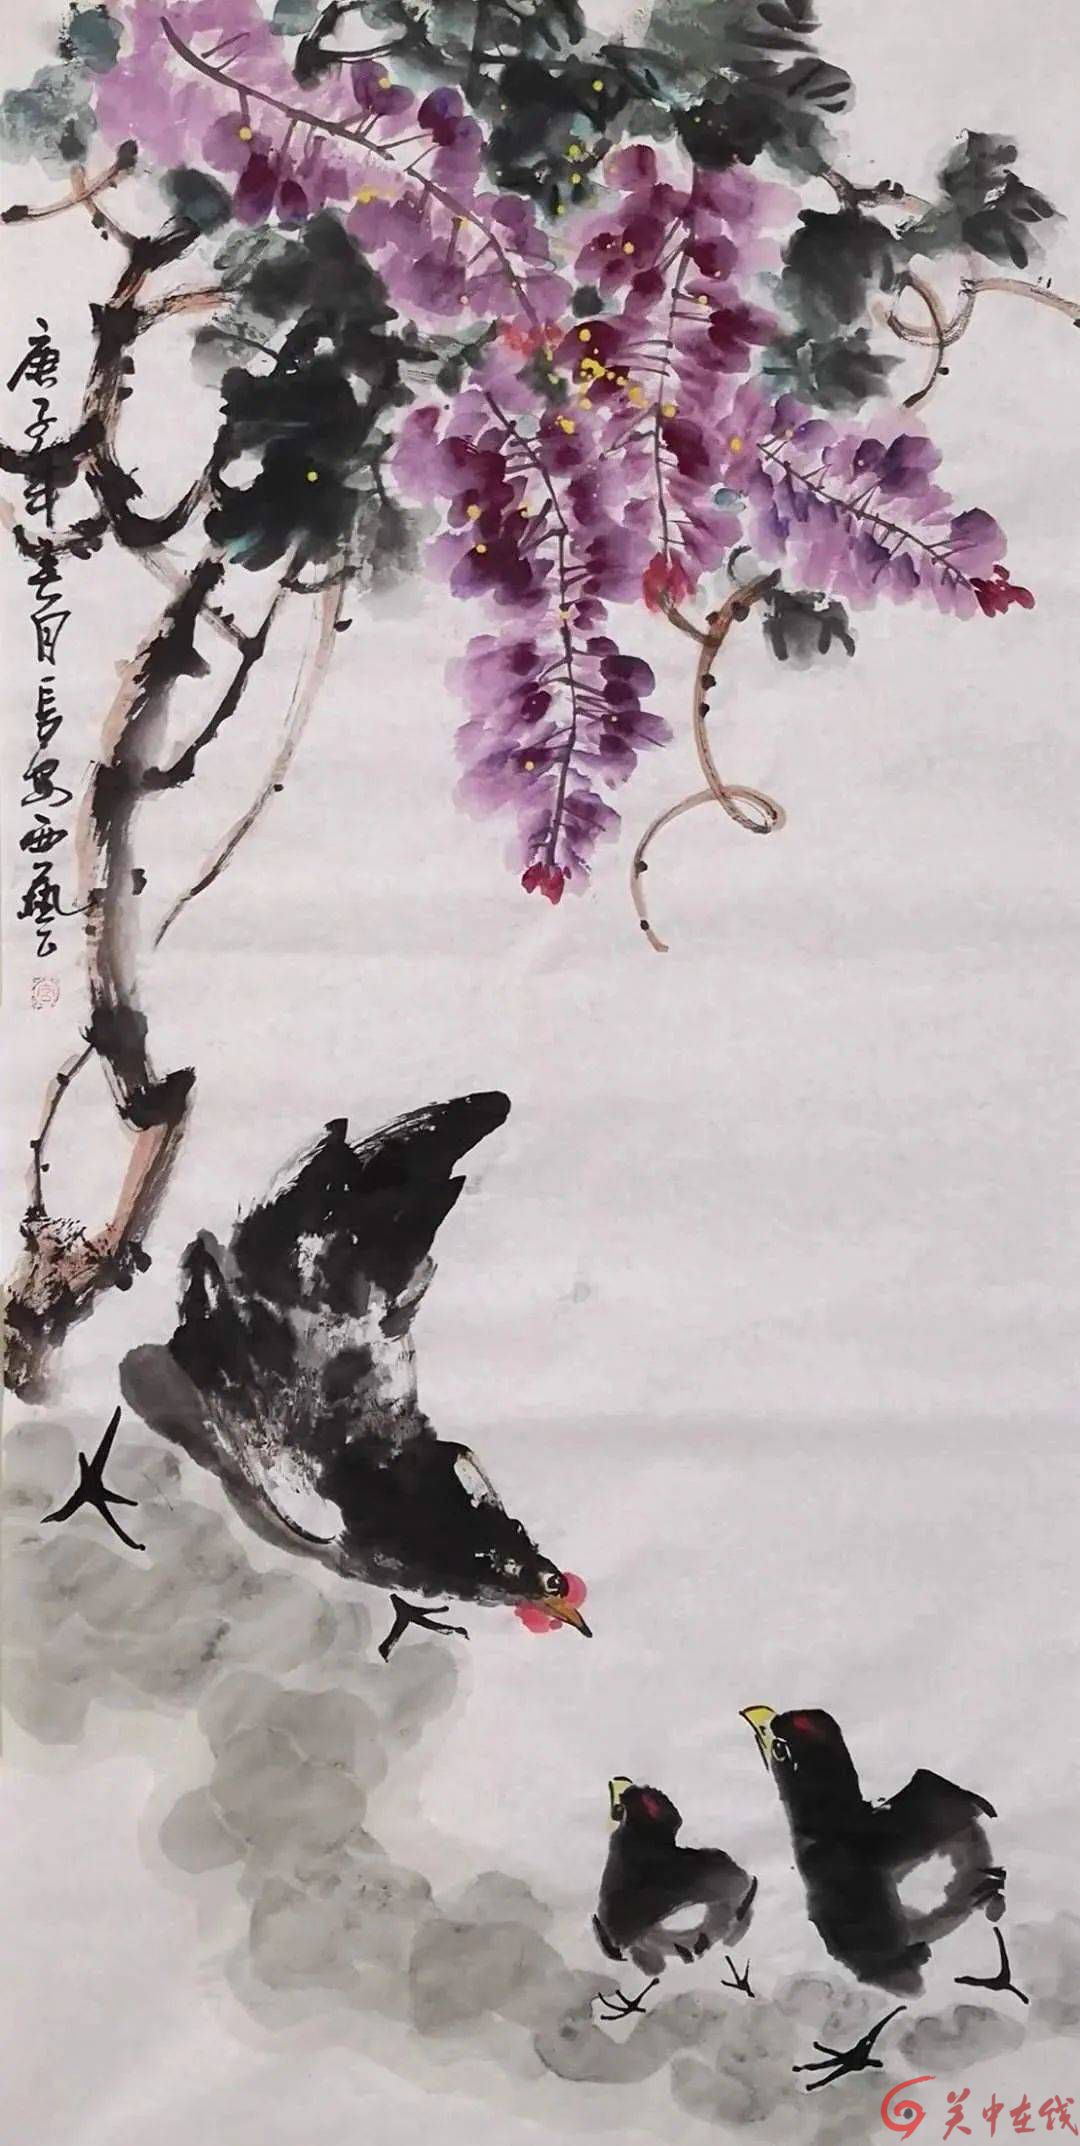 庚子年春月长安西艺
关中在线